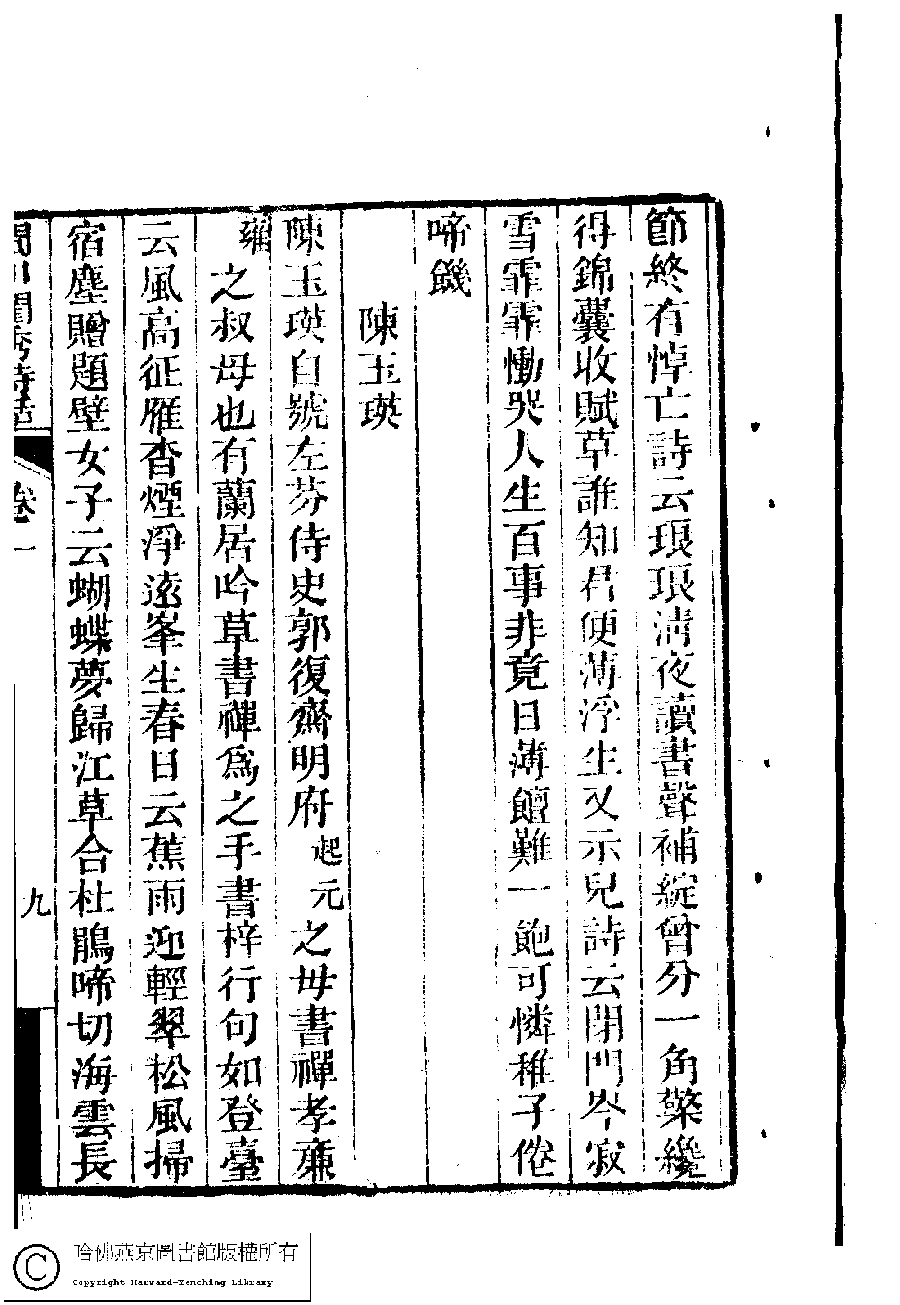 節終有悼亡詩云琅琅淸夜讀書聲補綻曾分一角檠纔
得錦囊收賦草誰知君便薄浮生又示兒詩云閉門岑寂
雪霏霏慟哭人生百事非竟日薄饘難一飽可憐稚子倦
啼饑
陳玉瑛
陳玉瑛自號左芬侍史郭復齋明府起元之母書禪孝廉
雍之叔母也有蘭居吟草書禪爲之手書梓行句如登臺
云風高征雁杳煙淨遠峯生春日云蕉雨迎輕翠松風掃
宿塵贈題壁女子云蝴蝶夢歸江草合杜鵑啼切海雲長
閩川閨秀詩話
卷一
九
哈佛燕京圖書館版權所有
Copyright Harvard-Yenching Library